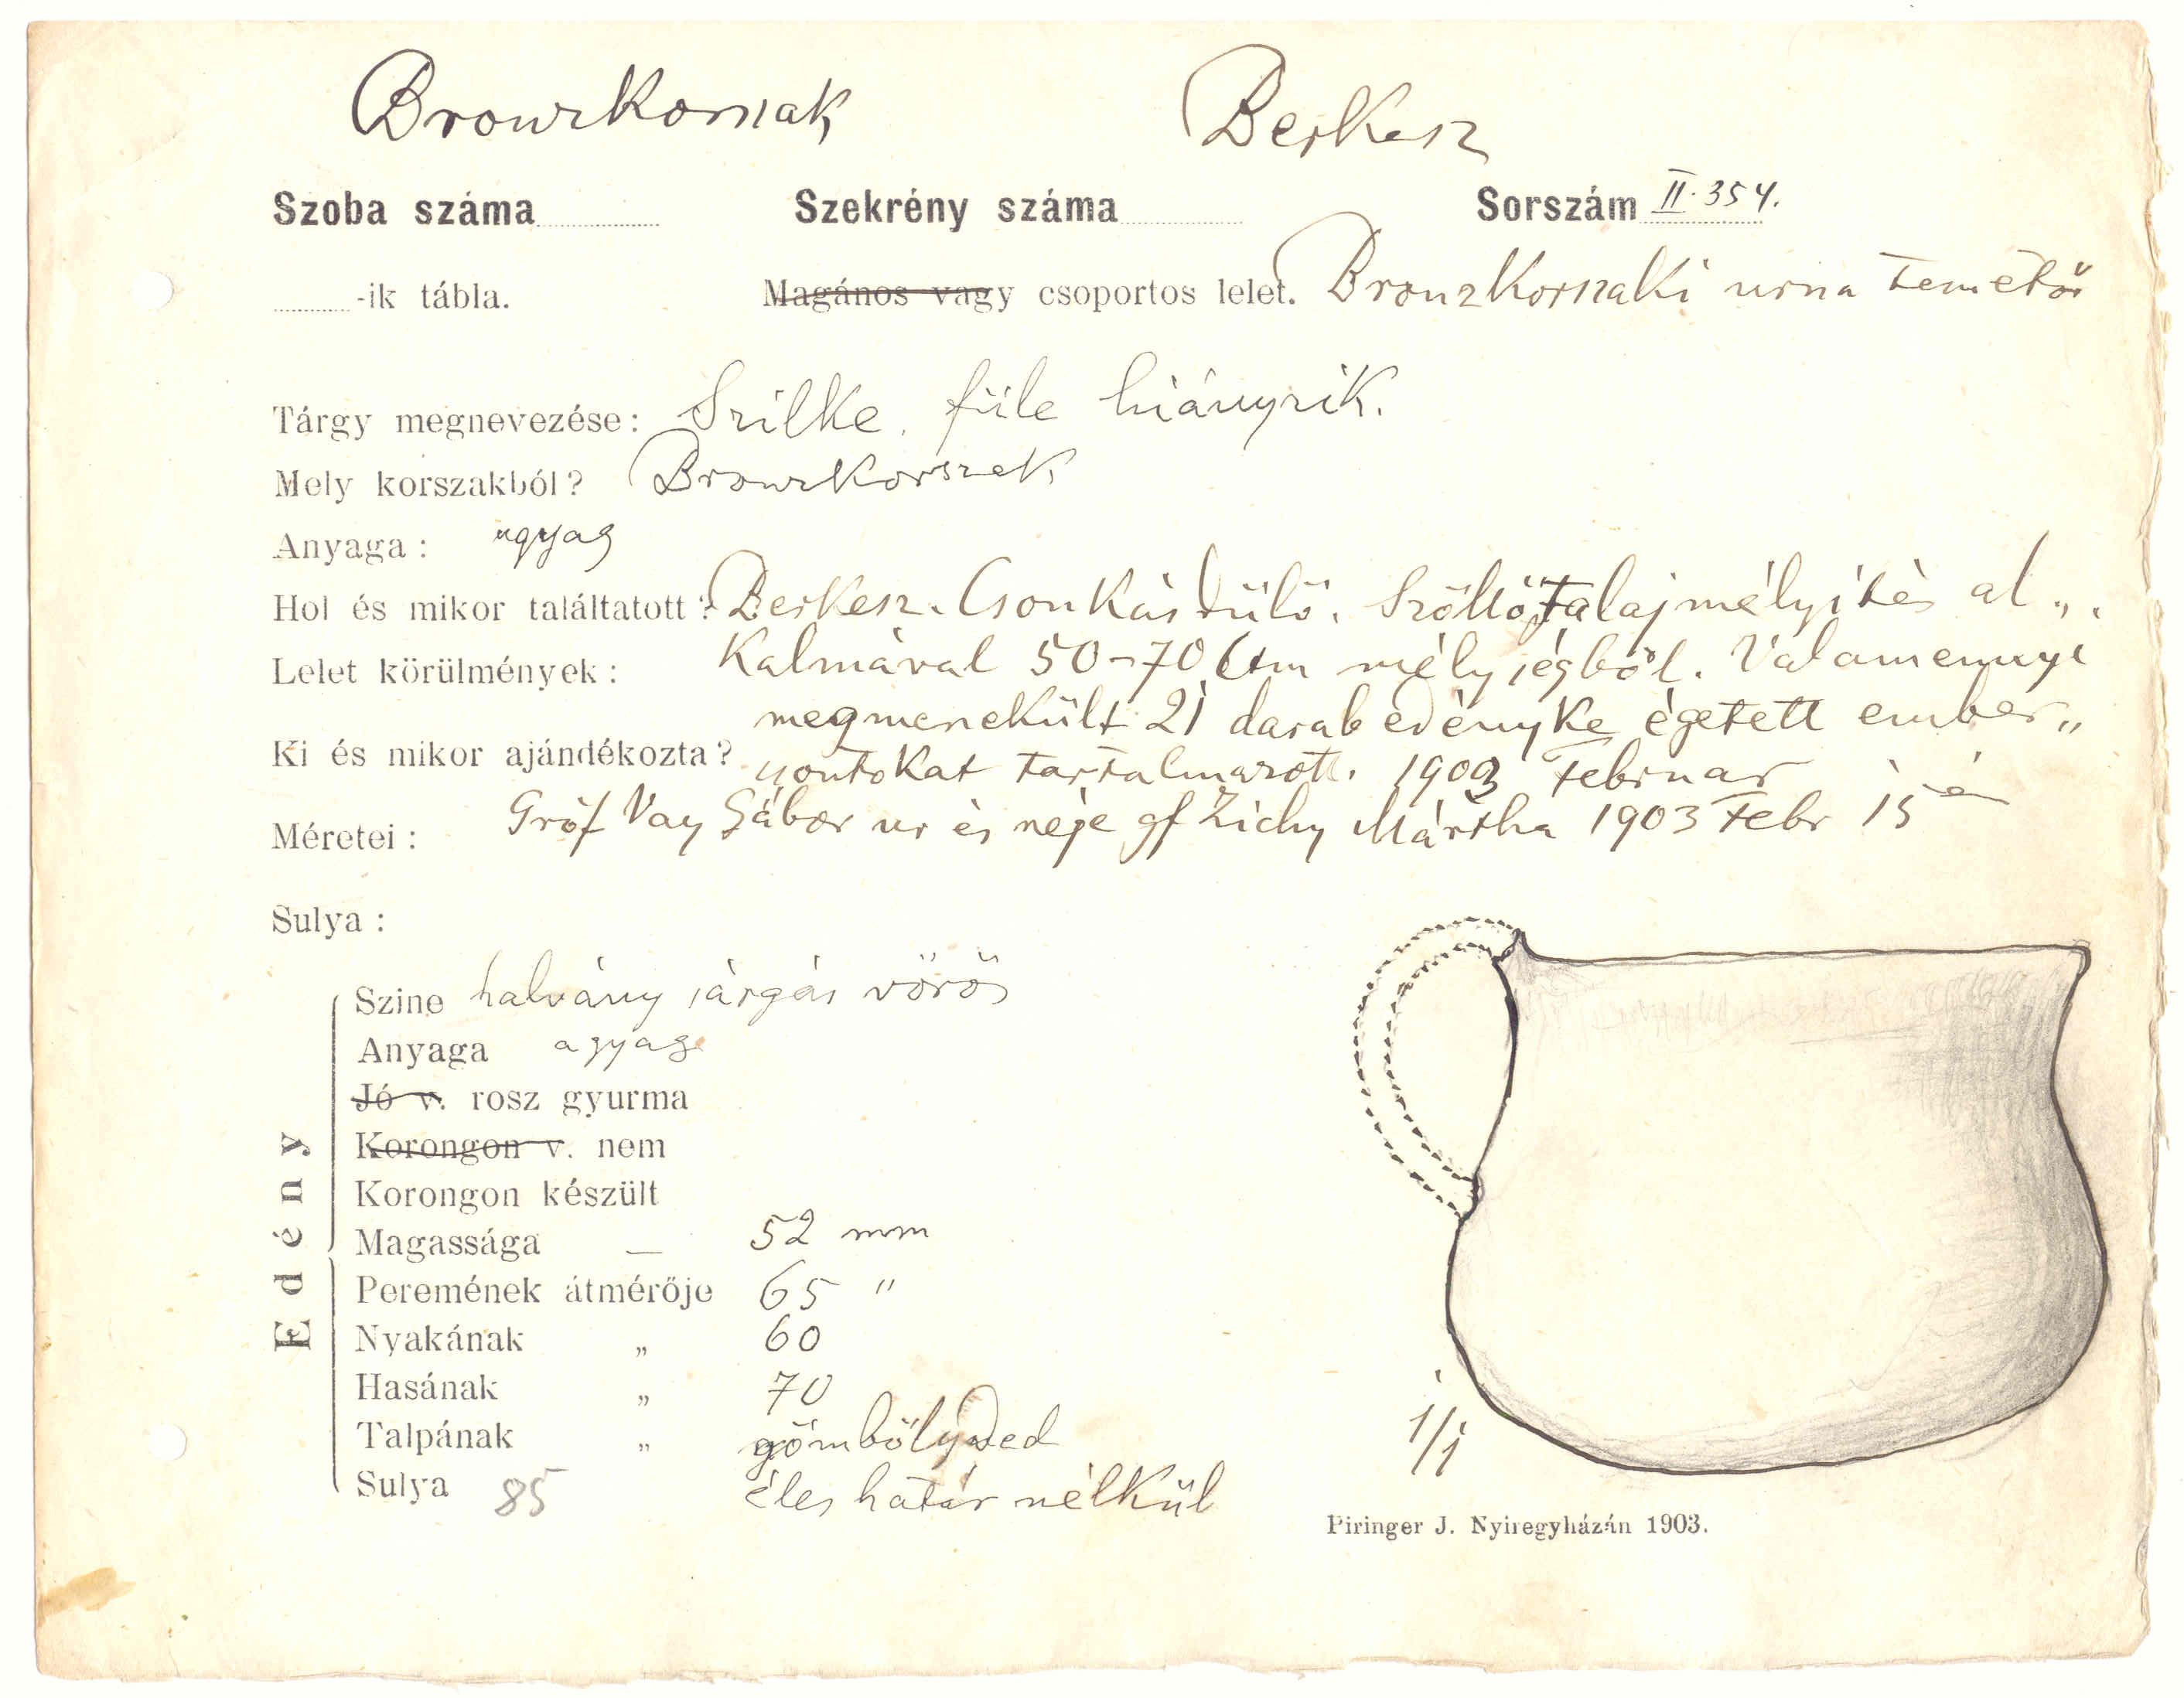 Bronzkorszak Berkesz
Szoba száma Szekrény száma Sorszám II. 354.
-ik tábla. Magános vagy csoportos lelet. Bronzkorszaki urna temető
Tárgy megnevezése: Szilke. füle hiányzik.
Mely korszakból? Bronzkorszak
Anyaga: agyag
Hol és mikor találtatott? Berkesz. Csonkás dűlő. Szőllőtalajmélyítés al„
Lelet körülmények: kalmával 50-70 Ctm mélységből. Valamennyi
megmenekült 21 darab edényke égetett ember„
Ki és mikor ajándékozta? csontokat tartalmazott. 1903 Februar
Méretei: Gróf Vay Gábor ur és neje gf Zichy Mártha 1903 Febr 15 én
Sulya:
Edény
Szine halvány sárgás vörös
Anyaga agyag
Jó v. rosz gyurma
Korongon v. nem
Korongon készült
Magassága — 52 mm
Peremének átmérője 65 "
Nyakának „ 60
Hasának „ 70
Talpának „ gömbölyded
Sulya 85 éles határ nélkül
1/1
Piringer J. Nyiregyházán 1903.